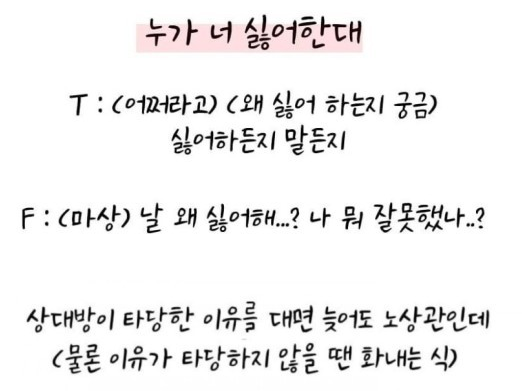 누가 너 싫어한대
T : (어쩌라고) (왜 싫어 하는지 궁금)
싫어하든지 말든지
F : (마상) 날 왜 싫어해...? 나 뭐 잘못했나..?
상대방이 타당한 이유를 대면 늦어도 노상관인데
(물론 이유가 타당하지 않을 땐 화내는 식)